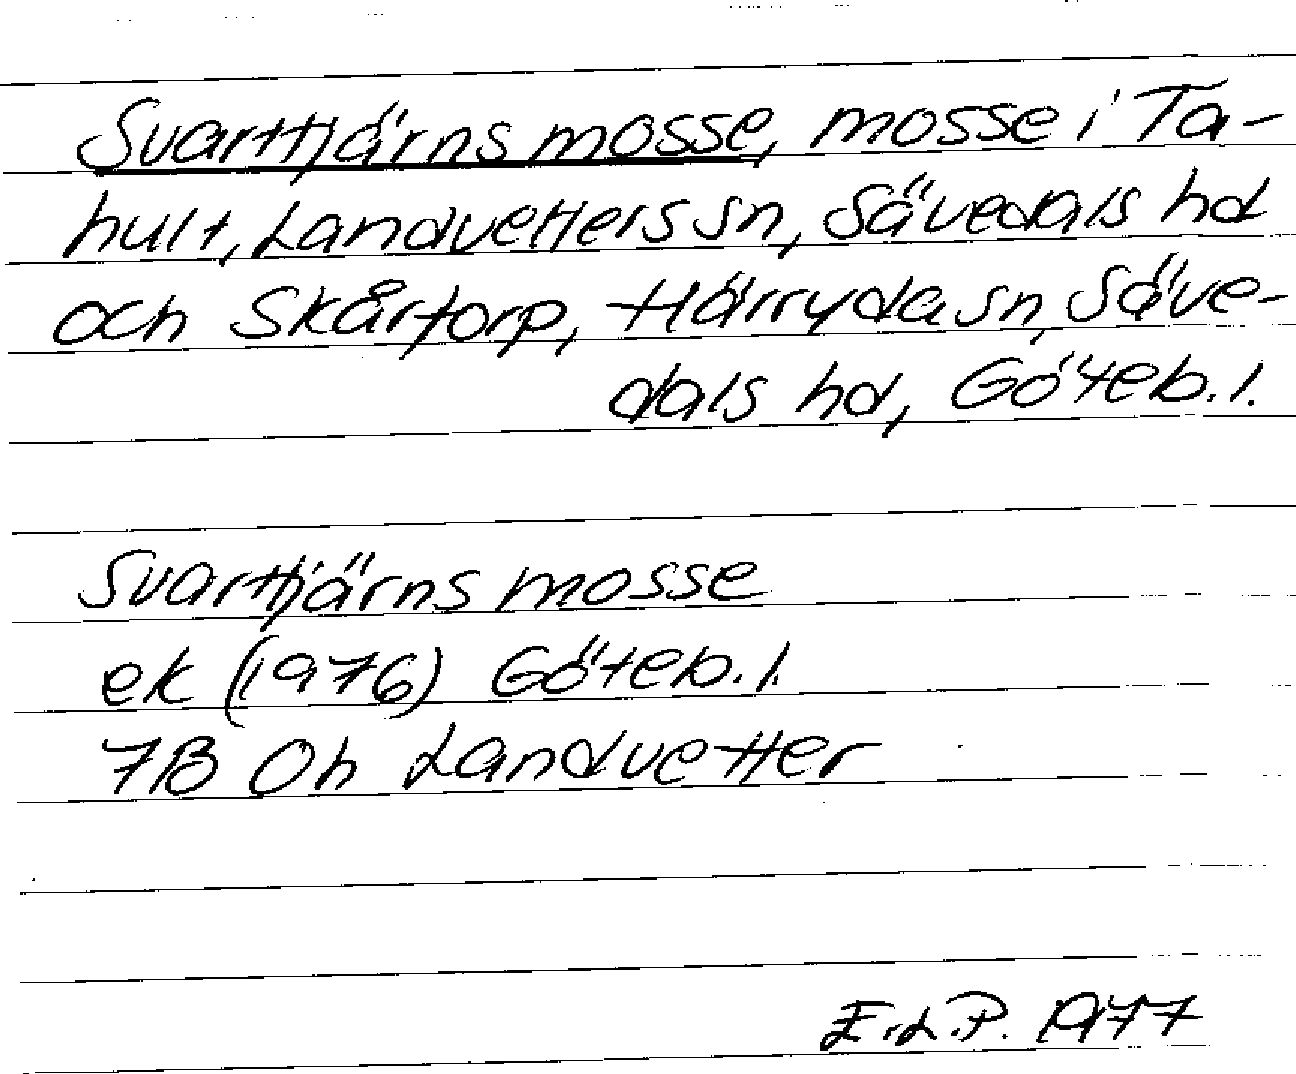 Svarttjärns mosse, mosse i Ta-
hult, Landvetters sn, Sävedals hd
och Skårtorp, Härryda sn, Säve-
dals hd, Göteb. l.
Svarttjärns mosse
ek (1976) Göteb. l.
7B 0h Landvetter
E.L.P. 1977